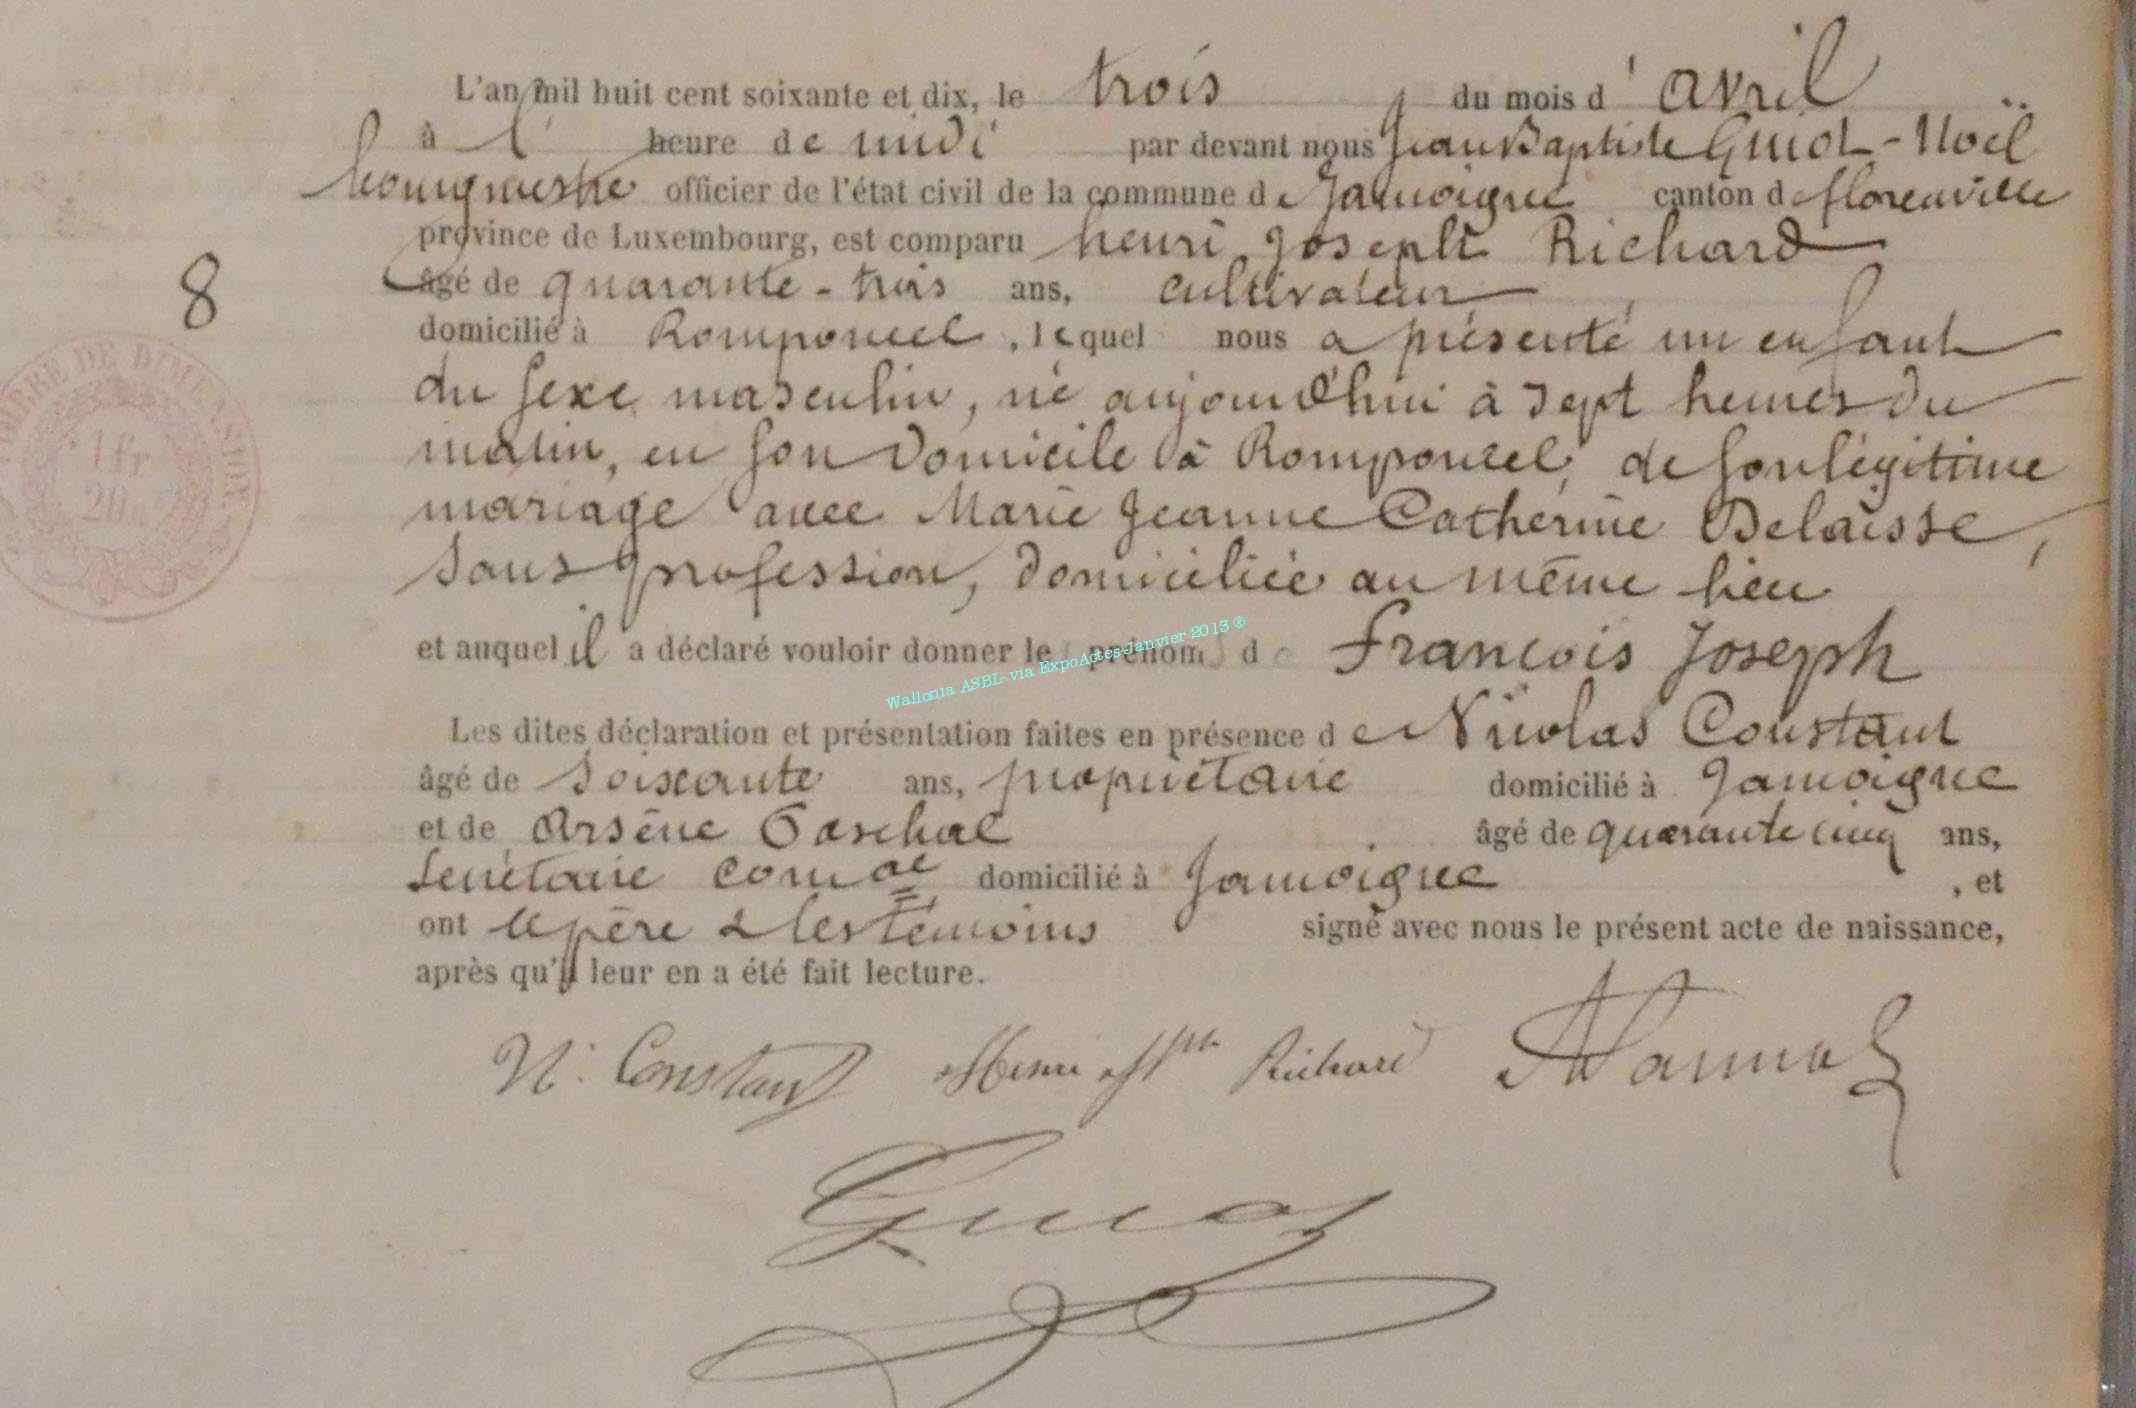 L'an mil huit cent soixante et dix, le trois du mois d'avril
à l'heure de midi par devant nous Jean Baptiste Guiot-Noël
bourgmestre officier de l'état civil de la commune de Jamoigne canton de florenville
province de Luxembourg, est comparu henri joseph Richard
âgé de quarante-trois ans, cultivateur
8
domicilié à Romponcel, lequel nous a présenté un enfant
du sexe masculin, né aujourd'hui à sept heures du
matin, en son domicile à Romponcel, de son légitime
mariage avec Marie Jeanne Catherine Delaisse,
sans profession, domiciliée au même lieu
et auquel il a déclaré vouloir donner le prénom de François Joseph
Wallonia ASBL-via ExpoActes-Janvier 2013 ®
Les dites déclaration et présentation faites en présence de Nicolas Constant
âgé de soixante ans, propriétaire domicilié à Jamoigne
et de Arsène Paschal âgé de quarante cinq ans,
Secrétaire comal domicilié à Jamoigne, et
ont le père & les témoins signé avec nous le présent acte de naissance,
après qu'il leur en a été fait lecture.
N. Constant Henri Jph Richard
Guiot
TIMBRE DE DIMENSION
1 fr
20